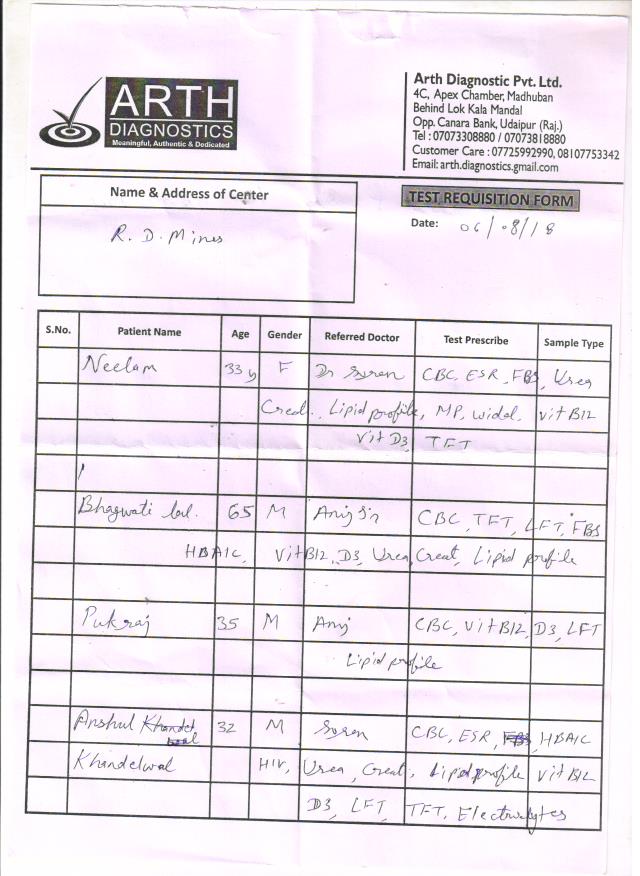 ARTH
DIAGNOSTICS
Meaningful, Authentic & Dedicated
Arth Diagnostic Pvt. Ltd.
4C, Apex Chamber, Madhuban
Behind Lok Kala Mandal
Opp. Canara Bank, Udaipur (Raj.)
Tel : 07073308880 / 07073818880
Customer Care : 07725992990, 08107753342
Email: arth.diagnostics.gmail.com
Name & Address of Center
R. D. Mines
TEST REQUISITION FORM
Date: 06/08/18
S.No. Patient Name Age Gender Referred Doctor Test Prescribe Sample Type
Neelam 33 y F Dr CBC, ESR, FBS, Urea
Creat., Lipid profile, MP, widal, vit B12
Vit D3, TFT
Bhagwati lal. 65 M CBC, TFT, LFT, FBS
HBA1C, Vit B12, D3, Urea, Creat, Lipid profile
Pukraj 35 M CBC, Vit B12, D3, LFT
Lipid profile
Anshul 32 M CBC, ESR, FBS, HBA1C
Khandelwal HIV, Urea, Creat, Lipid profile Vit B12
D3, LFT, TFT, Electrolytes